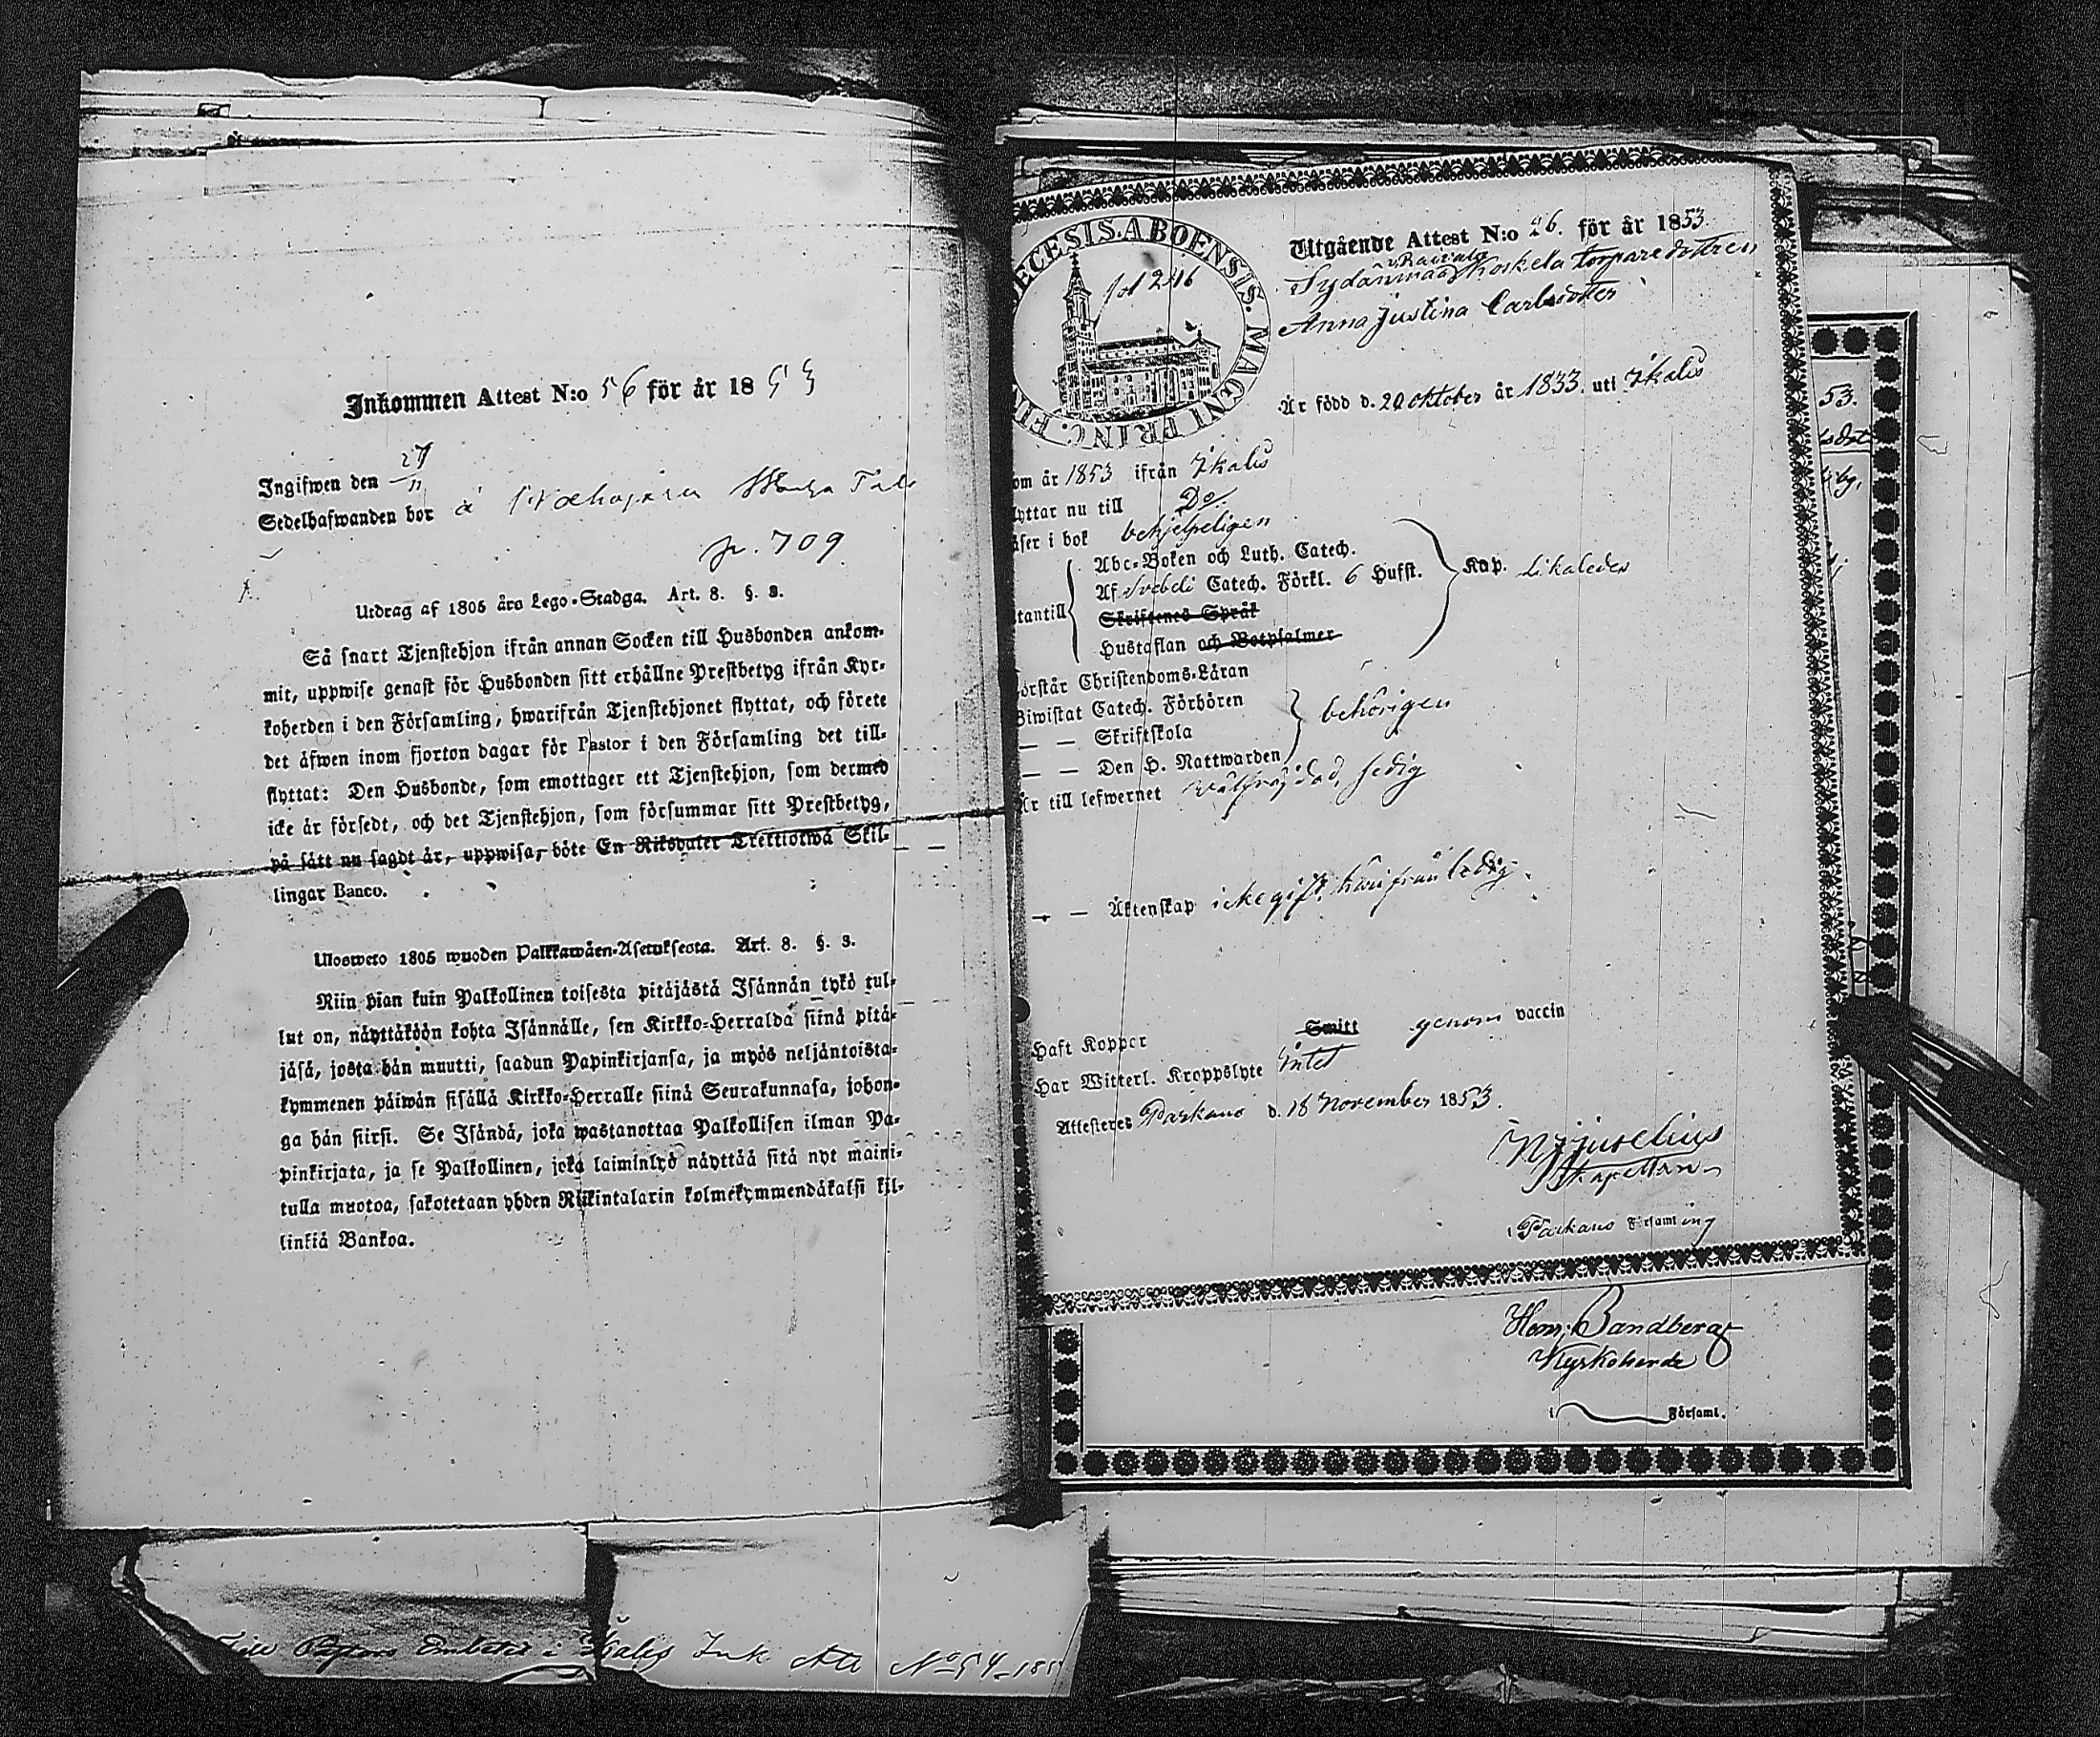 Inkommen Attest N:o 56 för år 1853
Ingifwen den 27/11
Sedelhafwanden bor å
p. 709
Utdrag af 1805 åro Lego-Stadga. Art. 8. §. 3.
Så snart Tjenstehjon ifrån annan Socken till Husbonden ankom-
mit, uppwise genast för Husbonden sitt erhållne Prestbetyg ifrån Kyr-
koherden i den Församling, hwarifrån Tjenstehjonet flyttat, och förete
det äfwen inom fjorton dagar för Pastor i den Församling det till-
flyttat: Den Husbonde, som emottager ett Tjenstehjon, som dermed
icke är försedt, och det Tjenstehjon, som försummar sitt Prestbetyg,
på sätt nu sagdt är, uppwisa, böte En Riksdaler Trettiotwå Skil-
lingar Banco.
Ulosweto 1805 wuoden Palkkawäen-Asetuksesta. Art. 8. §. 3.
Niin pian kuin Palkollinen toisesta pitäjästä Isännän tykö tul-
lut on, näyttäköön kohta Isännälle, sen Kirkko-Herralda siinä pitä-
jäsä, josta hän muutti, saadun Papinkirjansa, ja myös neljäntoista-
kymmenen päiwän sisällä Kirkko-Herralle siinä Seurakunnasa, johon-
ga hän siirsi. Se Isändä, joka wastanottaa Palkollisen ilman Pa-
pinkirjata, ja se Palkollinen, joka laiminlyö näyttää sitä nyt maini-
tulla muotoa, sakotetaan yhden Riikintalarin kolmekymmendäkaksi kil-
linkiä Bankoa.
Till Pastors Embetet i Ikalis Ink Att No 54 185
ECESIS. ABOENSIS. MAGNI PRINC. FI
fol 246
Utgående Attest N:o 26. för år 1853.
Sydänmaa Koskela torparedottren
Anna Justina Carlsdotter
Är född d. 20 oktober år 1833. uti Ikalis
om år 1853 ifrån Ikalis
lyttar nu till Do.
äser i bok behjelpeligen
tantill
Abc-Boken och Luth. Catech.
Af Svebeli Catech. Förkl. 6 Hufst. Kap. likaledes
Skriftenes Språk
Hustaflan och Botpsalmer
örstår Christendoms-Läran
Biwistat Catech. Förhören
— — Skriftskola behörigen
— — Den H. Nattwarden
Är till lefwernet wälfrejdad, sedig
— — Äktenskap icke gift, härifrån ledig.
Haft Kopper Smitt genom vaccin
Har Witterl. Kroppslyte Intet
Attesteres Parkano d. 18 November 1853.
Kapellan
i Parkano Församling
53.
Sandberg
Kyrkoherde
i Församl.